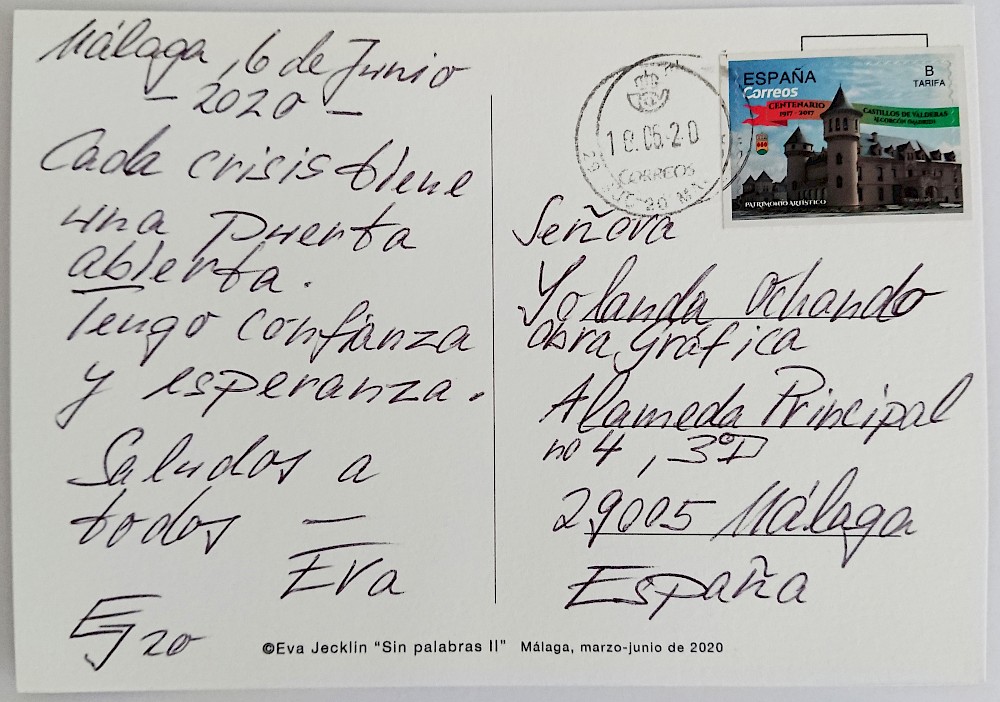 Málaga, 6 de Junio
— 2020 —
Cada crisis tiene
una Puerta
abierta.
Tengo confianza
y esperanza.
Saludos a
todos —
Eva
EJ 20
ESPAÑA
Correos
B
TARIFA
CENTENARIO
1917 - 2017
CASTILLOS DE VALDERAS
ALCORCÓN (MADRID)
PATRIMONIO ARTÍSTICO
CORREOS
Señora
Yolanda Ochando
obra gráfica
Alameda Principal
nº 4, 3ºD
29005 Málaga
España
©Eva Jecklin "Sin palabras II" Málaga, marzo-junio de 2020